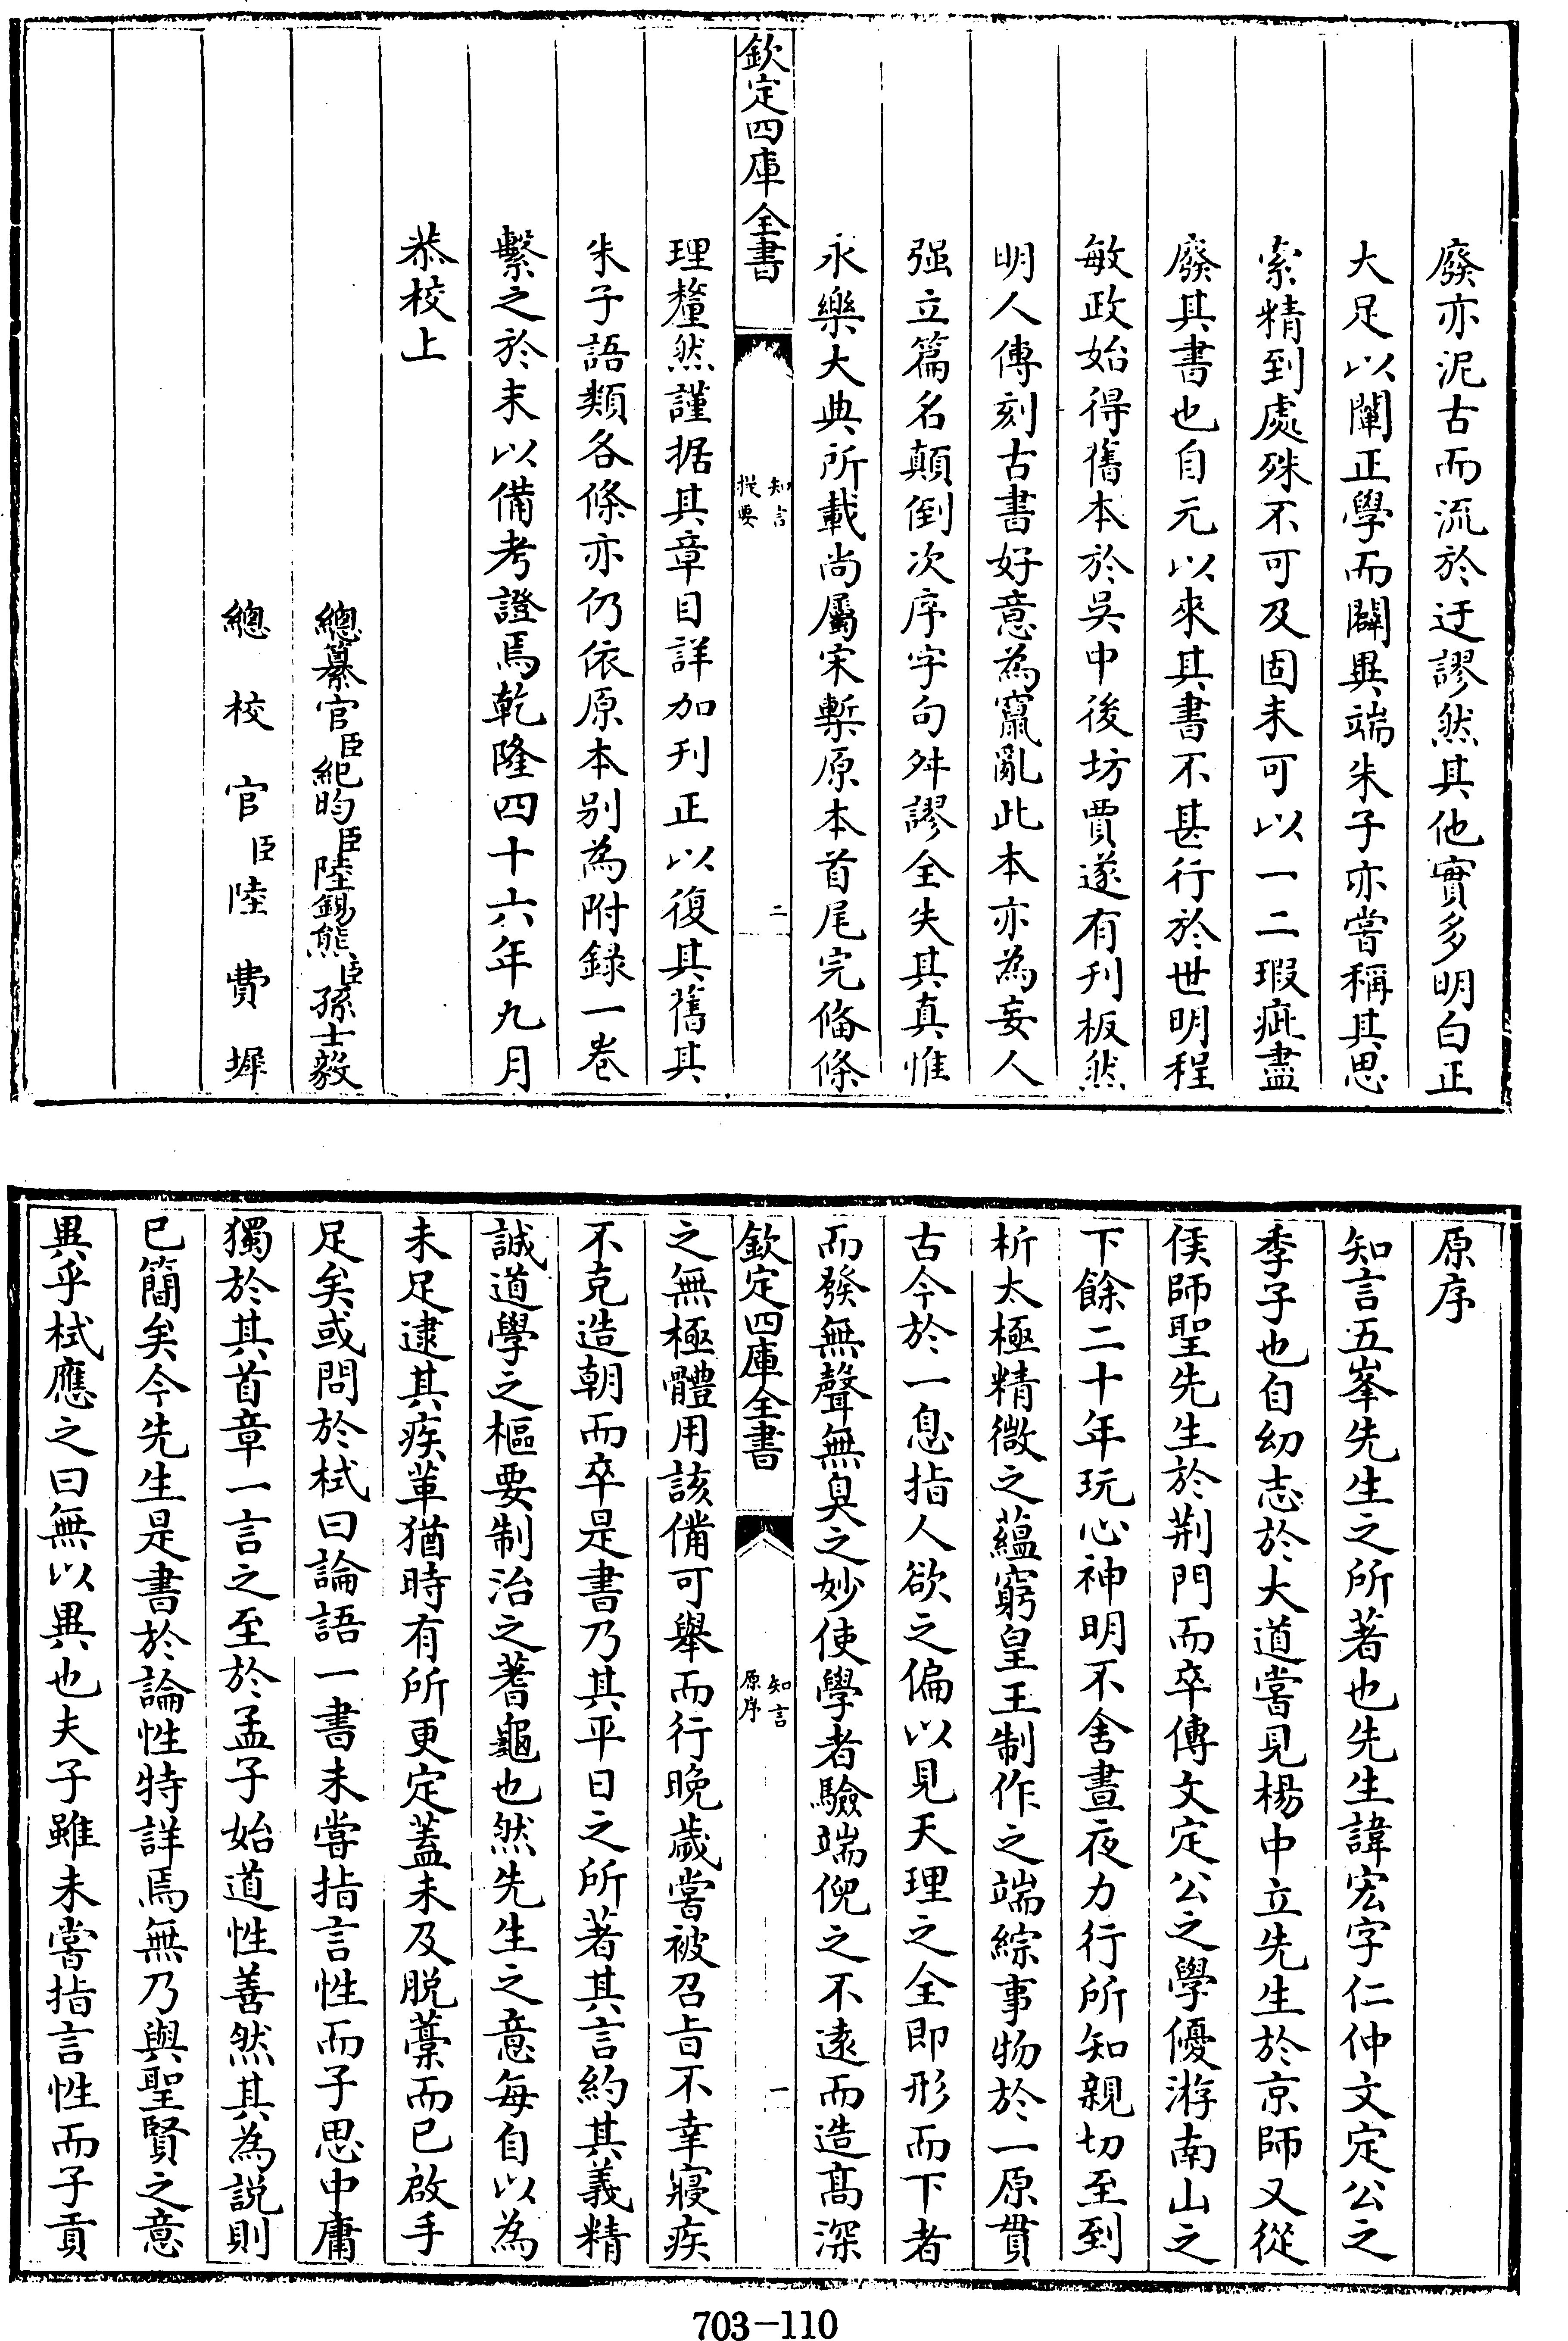 廢亦泥古而流於迂謬然其他實多明白正
大足以闡正學而闢異端朱子亦嘗稱其思
索精到處殊不可及固未可以一二瑕疵盡
廢其書也自元以來其書不甚行於世明程
敏政始得舊本於吳中後坊賈遂有刋板然
明人傳刻古書好意為竄亂此本亦為妄人
强立篇名顛倒次序字句舛謬全失其真惟
永樂大典所載尚屬宋槧原本首尾完備條
欽定四庫全書
知言
提要
二
理釐然謹据其章目詳加刋正以復其舊其
朱子語類各條亦仍依原本别為附錄一卷
繫之於末以備考證焉乾隆四十六年九月
恭校上
總纂官臣紀昀臣陸錫熊臣孫士毅
總校官臣陸費墀
原序
知言五峯先生之所著也先生諱宏字仁仲文定公之
季子也自幼志於大道嘗見楊中立先生於京師又從
侯師聖先生於荆門而卒傳文定公之學優游南山之
下餘二十年玩心神明不舍晝夜力行所知親切至到
析太極精微之蘊窮皇王制作之端綜事物於一原貫
古今於一息指人欲之偏以見天理之全即形而下者
而發無聲無臭之妙使學者驗端倪之不逺而造髙深
欽定四庫全書
知言
原序
一
之無極體用該備可舉而行晚歲嘗被召旨不幸寢疾
不克造朝而卒是書乃其平日之所著其言約其義精
誠道學之樞要制治之蓍龜也然先生之意每自以為
未足逮其疾革猶時有所更定蓋未及脱藁而已啟手
足矣或問於栻曰論語一書未嘗指言性而子思中庸
獨於其首章一言之至於孟子始道性善然其為説則
已簡矣今先生是書於論性特詳焉無乃與聖賢之意
異乎栻應之曰無以異也夫子雖未嘗指言性而子貢
703-110